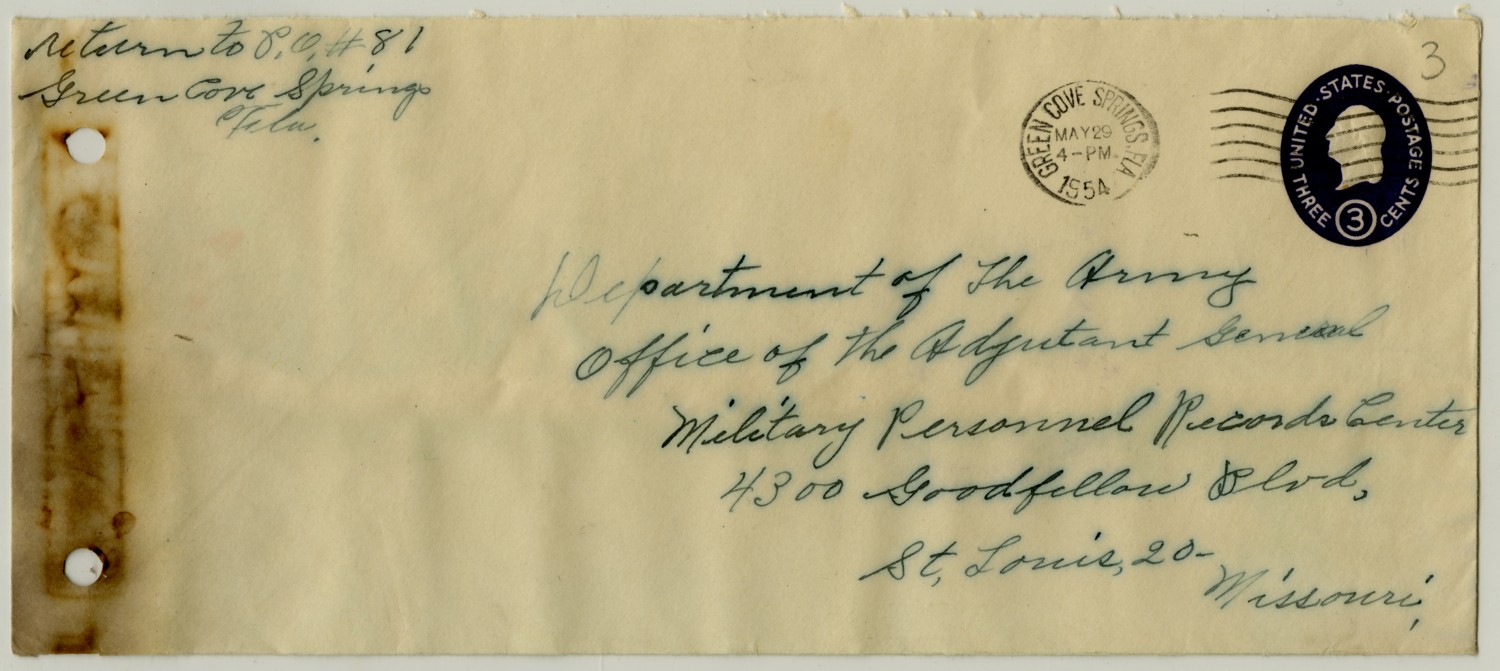 return to P.O. # 81
Green Cove Springs
Fla.
3
GREEN COVE SPRINGS, FLA.
MAY 29
4-PM
1954
UNITED·STATES·POSTAGE
THREE 3 CENTS
Department of The Army
Office of The Adjutant General
Military Personnel Records Center
4300 Goodfellow Blvd,
St, Louis, 20-
Missouri,